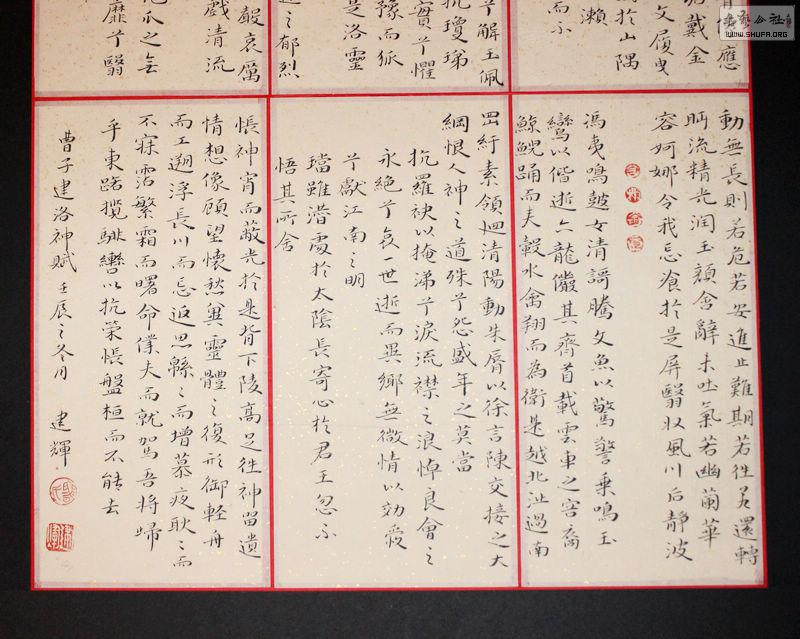 書藝公社
WWW.SHUFA.ORG
應
戴金
文履曳
於山隅
瀨
而不
兮解玉佩
抗瓊珶
實兮懼
豫而狐
是洛靈
之郁烈
聲哀厲
戲清流
瓜之無
靡兮翳
動無長則若危若安進止難期若往若還轉
眄流精光潤玉顏含辭未吐氣若幽蘭華
容婀娜令我忘飡於是屏翳收風川后靜波
馮夷鳴鼓女清謌騰文魚以驚警乘鳴玉
鸞以偕逝六龍儼其齊首載雲車之容裔
鯨鯢踊而夾轂水禽翔而為衛是越北沚過南
罡紆素領迴清陽動朱脣以徐言陳交接之大
綱恨人神之道殊兮怨盛年之莫當
抗羅袂以掩涕兮淚流襟之浪悼良會之
永絕兮哀一世逝而異鄉無微情以効愛
兮獻江南之明
璫雖潛處於太陰長寄心於君王忽不
悟其所舍
悵神宵而蔽光於是背下陵高足往神留遺
情想像顧望懷愁冀靈體之復形御軽舟
而上遡浮長川而忘返思緜〻而增慕夜耿〻而
不寐霑繁霜而曙命僕夫而就駕吾將歸
乎東路攬騑轡以抗策悵盤桓而不能去
曹子建洛神賦 壬辰之冬月 建輝